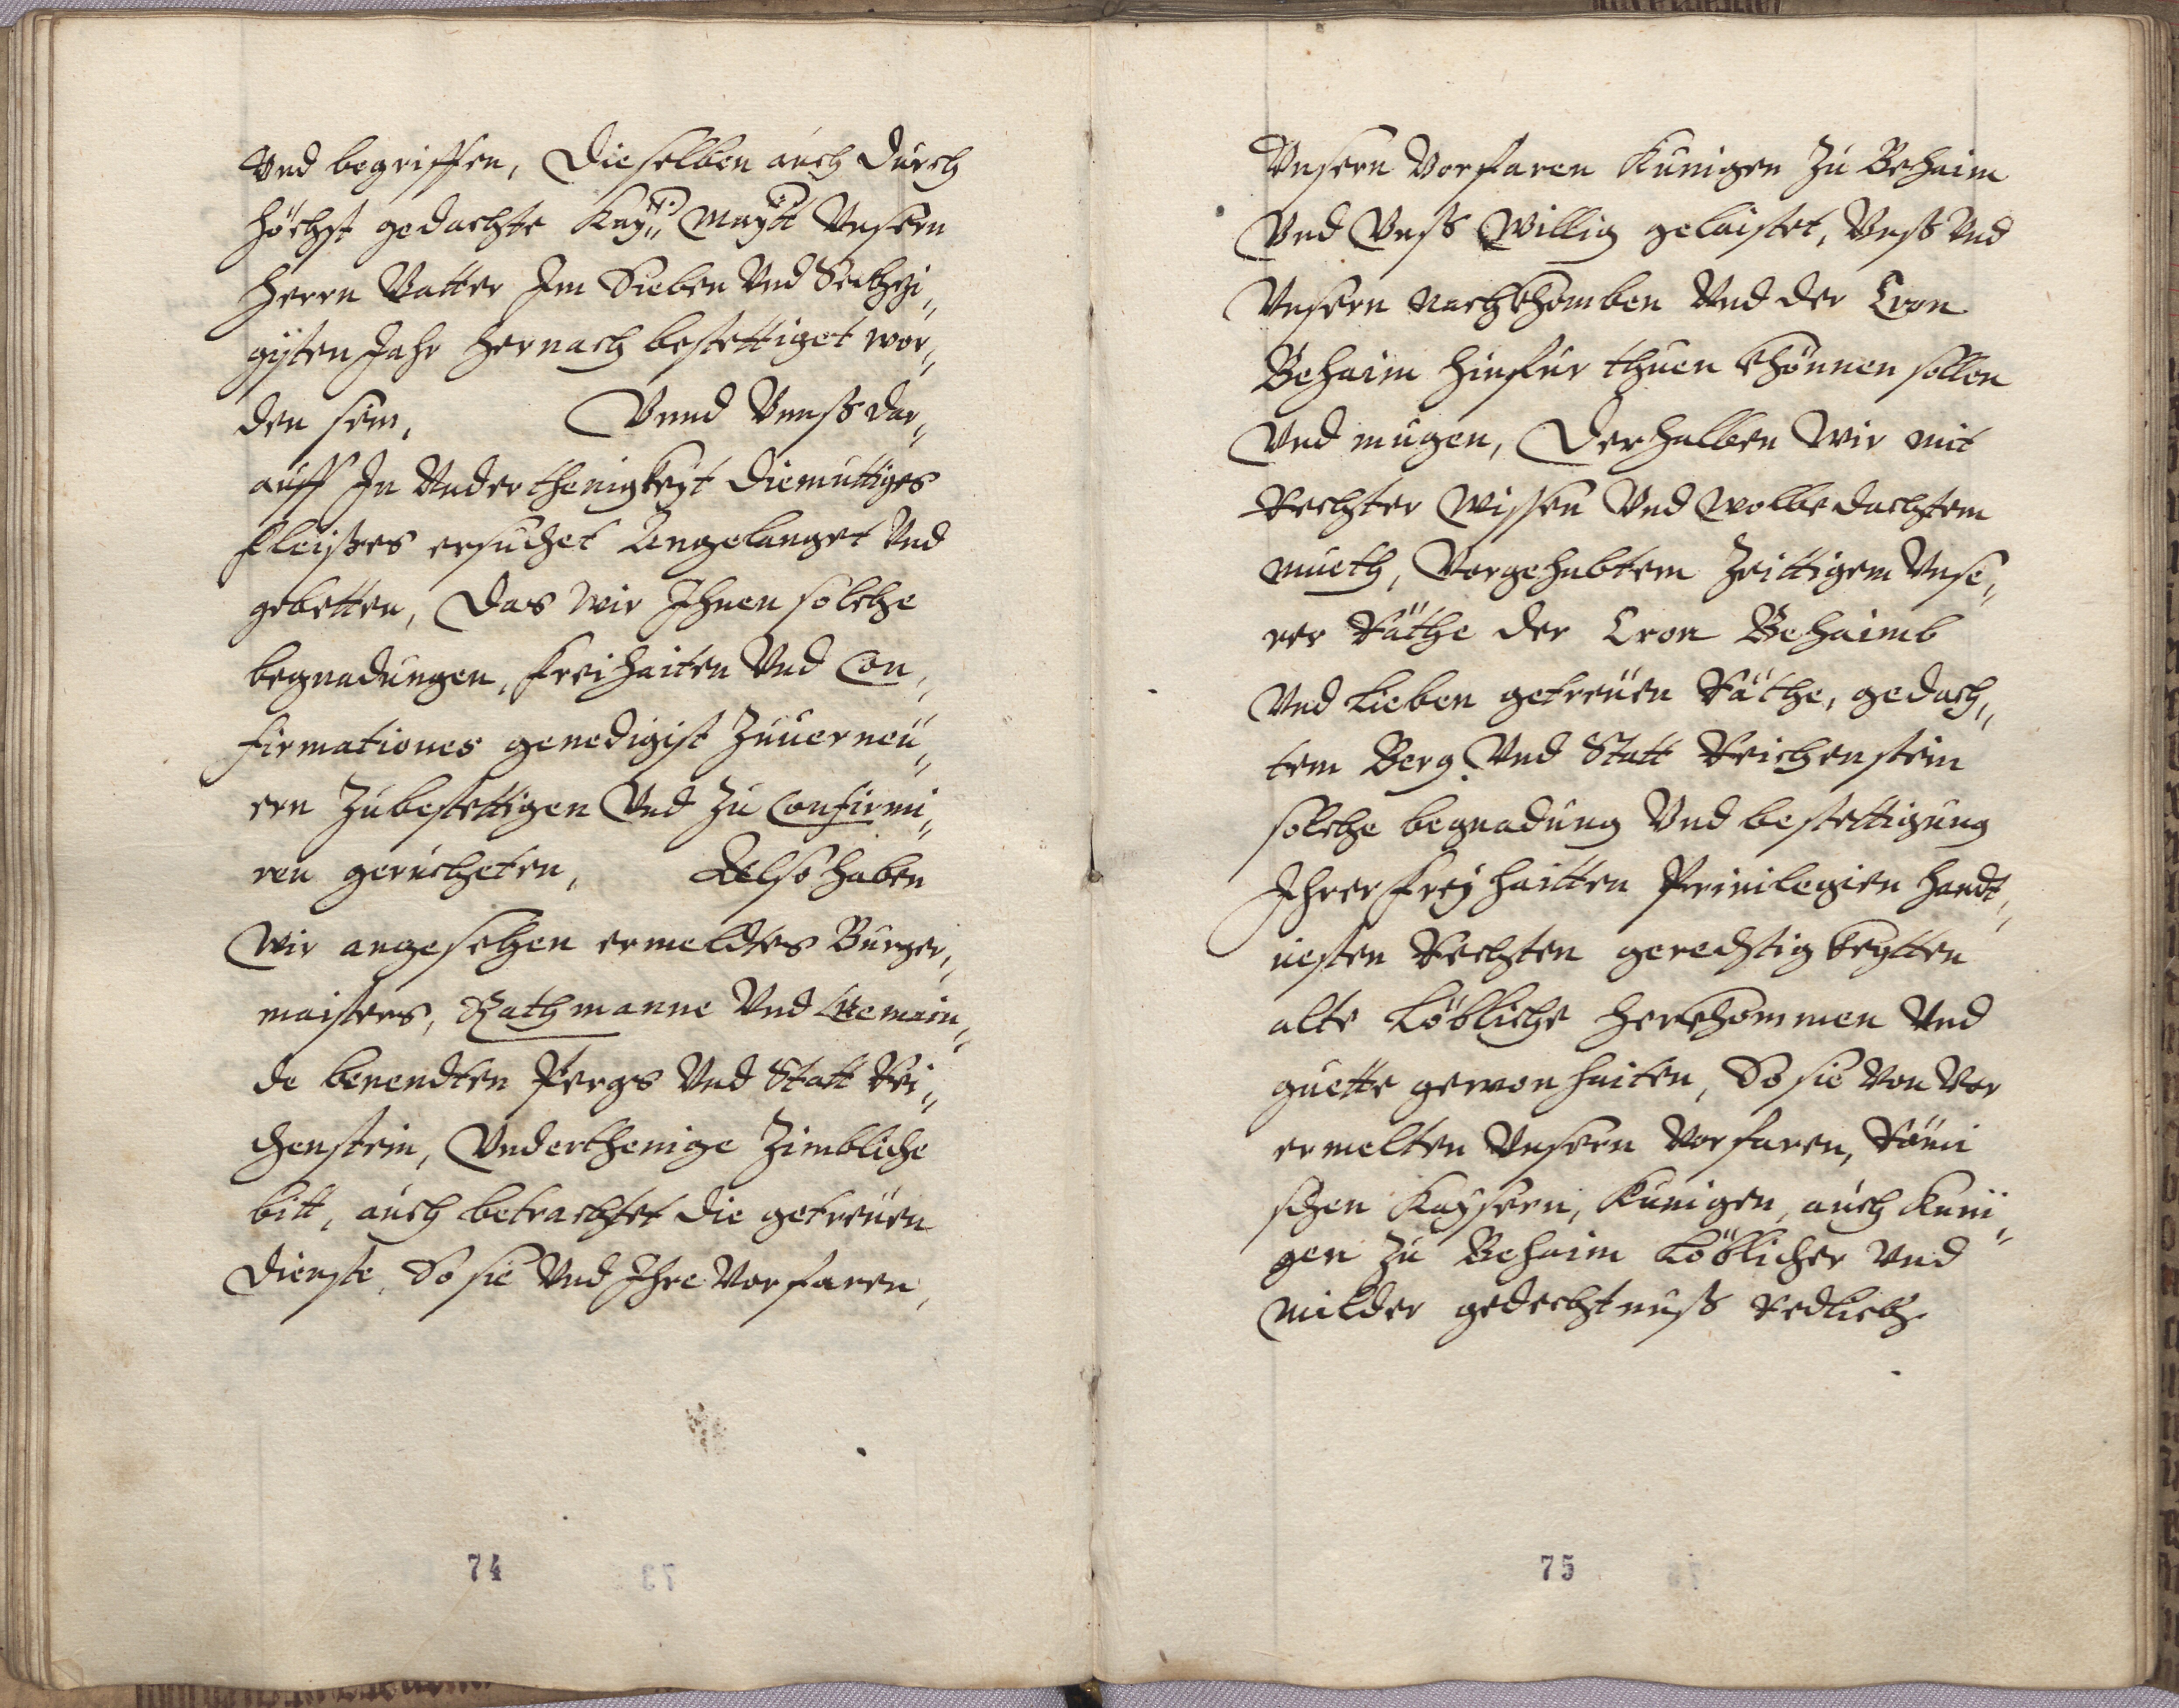 Vnd begriffen, Die selben auch durch
höchst gedachte Kay: Maytt Vnsern
Herrn Vatter Im Sieben Vnd Sechzi„
gisten Jahr hernach bestettiget wor„
den sein, Vnnd Vnnß dar„
auff In Vnderthenigkeyt diemuttiges
fleisses ersuchet Angelanget Vnd
gebetten, Das wir Ihnen solche
begnadungen, freihaiten Vnd Con„
firmationes genedigist Zuuerneu„
ern Zubestettigen Vnd Zu Confirmi„
ren geruchten, Also haben
Wir angesehen ermeldtes Burger„
maisters, Rathmanne Vnd Gemain„
de benendten Pergs Vnd Statt Rei„
chenstein, Vnderthenige Zimbliche
bitt, auch betrachtet die getreuen
Dienste, So sie Vnd Ihre Vorfaren,
74
Vnsern Vorfaren Kunigen Zu Behaim
Vnd Vnß Willig gelaistet, Vnß Vnd
Vnsern Nachkhomben Vnd der Cron
Behaim hinfur thuen khönnen sollen
Vnd mugen, Derhalben Wir mit
Rechter Wissen Vnd Wolbedachtem
mueth, Vorgehabtem Zeittigem Vnse„
rer Räthe der Cron Behaimb
Vnd Lieben getreuen Räthe, gedach„
tem Berg Vnd Statt Reichenstein
solche begnadung Vnd bestettigung
Ihrer freyhaitten Priuilegien Handt„
uesten Rechten gerechtigkeytten
alte Löbliche herkhommen Vnd
guette gewonhaiten, So sie Von Vor
ermelten Vnsern Vorfaren, Römi
schen Kaysern, Kunigen, auch Kuni„
gen Zu Behaim Löblicher Vnd
Milder gedechtnuß Redlich
75